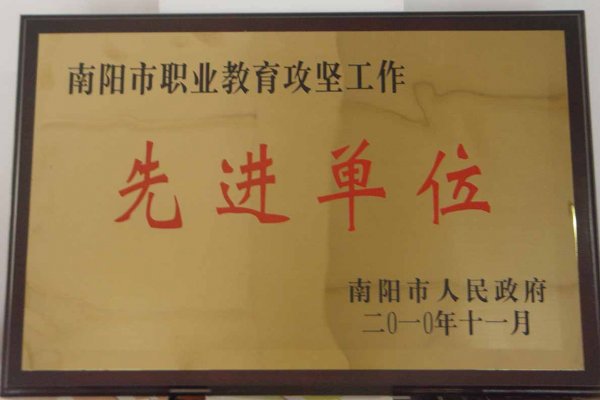 南阳市职业教育攻坚工作
先进单位
南阳市人民政府
二〇一〇年十一月